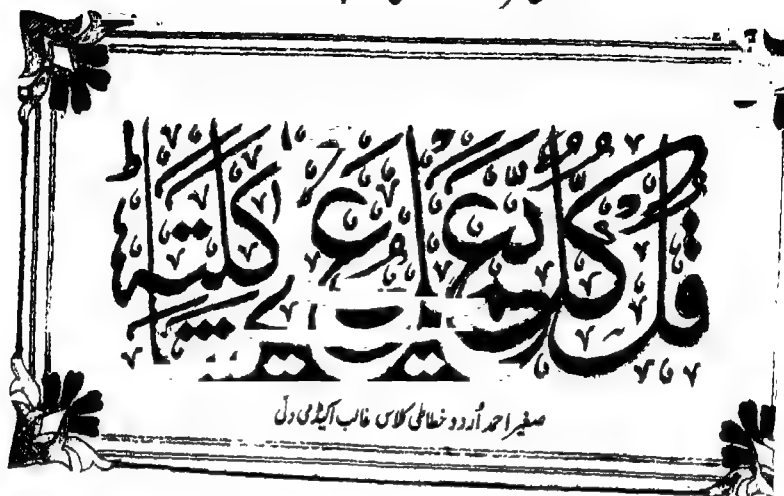 قُلْ كُلٌّ يَعْمَلُ عَلٰى شَاكِلَتِهٖ
صغیر احمد اُردو خطاطی کلاس غالب اکیڈمی دلّی